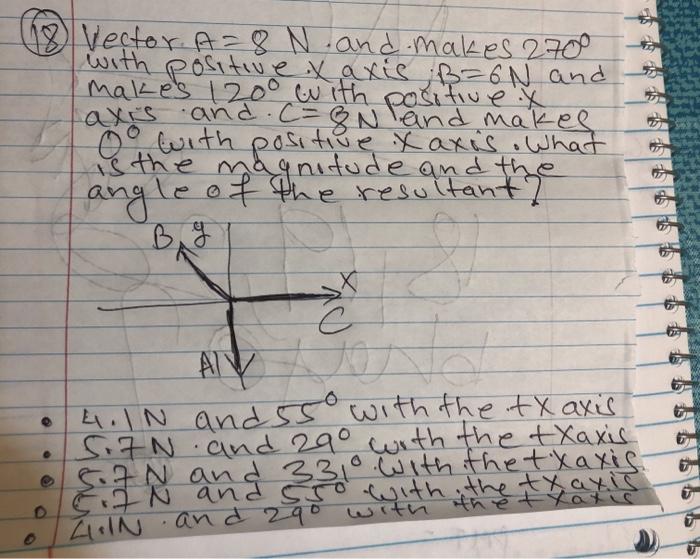 18) Vector A = 8 N and makes 270°
with positive x axis, B=6N and
makes 120° with positive x
axis and C=8N and makes
0° with positive x axis. What
is the magnitude and the
angle of the resultant?
B y
X
C
A
4.1N and 55° with the +x axis
5.7N and 29° with the +x axis
5.7N and 331° with the +x axis
5.7N and 55° with the +x axis
4.1N and 29° with the +x axis